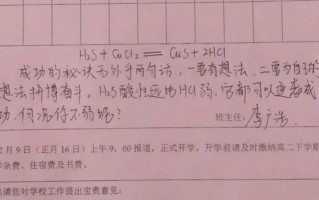 H₂S + CuCl₂ === CuS + 2HCl
成功的秘诀无外乎两句话，一要有想法，二要为自己的
想法拼博奋斗。H₂S酸性远比HCl弱，它都可以逆袭成
功，何况你不弱呢？
班主任：李广浩
2月9日（正月16日）上午9：00报道，正式开学。升学前请及时缴纳高二下学期
学杂费、住宿费及书费。
请您对学校工作提出宝贵意见：